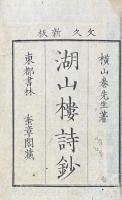 文久新板
橫山卷先生著
湖山樓詩鈔
東都書林 奎章閣藏